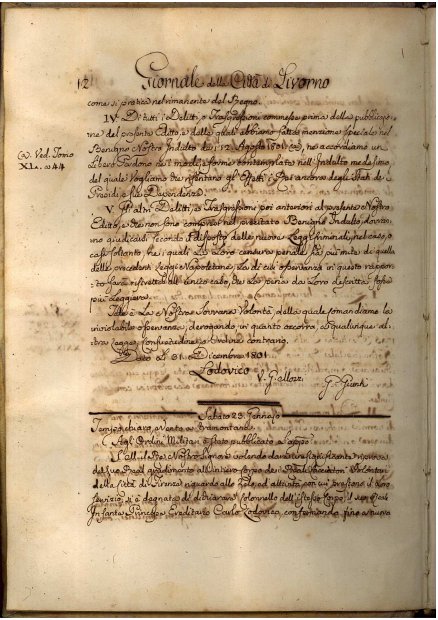 12 Giornale della Città di Livorno
come si pratica nel rimanente del Regno.
IV. Di tutti i Delitti, o Trasgressioni commesse prima della pubblicazio-
ne del presente Editto, e delle quali abbiamo fatta menzione speciale nel
Benigno Nostro Indulto de' 12. Agosto 1801 (a), ne accordiamo un
(a) Ved. Tomo
XL. a 44
Libero Perdono ne' modi, e forme contemplate nell'Indulto medesimo
del quale Vogliamo che risentano gli Effetti i Rei ancora degli Stati de'
Presidi, e sue Dependenze.
V. Gli altri Delitti, o Trasgressioni poi anteriori al presente Nostro
Editto, e che non sono compresi nel precitato Benigno Indulto, dovran-
no giudicarsi secondo il disposto delle nuove Leggi Criminali, nel caso, o
casi soltanto, che i quali la Loro censura penale sia più mite di quella
delle precedenti Leggi Napoletane, la di cui osservanza in questo rappor-
to sarà ristretta all' unico caso, che la pena da Loro descritta fosse
più leggiera.
Tale è La Nostra Sovrana Volontà, della quale comandiamo la
inviolabile osservanza, derogando, in quanto occorra, a qualunque al-
tra Legge, Consuetudine, o Ordine contrario.
Dato li 31. Dicembre 1801.
Lodovico
V. Gallozz
G. Giunti
Sabato 23. Gennajo
Tempo chiaro, e Vento a Tramontana
Agl' Ordini Militari è stato pubblicato l'appo
S. M. il Re Nostro Signore volendo dare una
del suo Real gradimento all'intiero Corpo de'
della Città di Firenze riguardo allo zelo, ed attività, con cui prestano il loro
servizio, si è degnata di dichiarare Colonnello dell'istesso Corpo il
Infante Principe Ereditario Carlo Lodovico, confermando fino a nuova